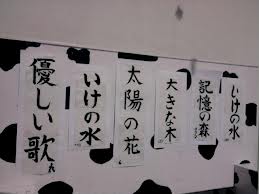 いけの水
記憶の森
大きな木
太陽の花
いけの水
優しい歌